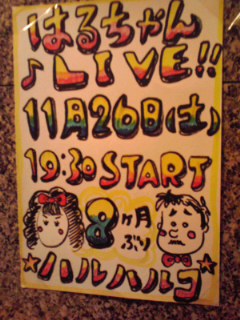 はるちゃん
♪LIVE!!
11月26日(土)
19:30START
8ヶ月
ぶり
☆ハルハルコ